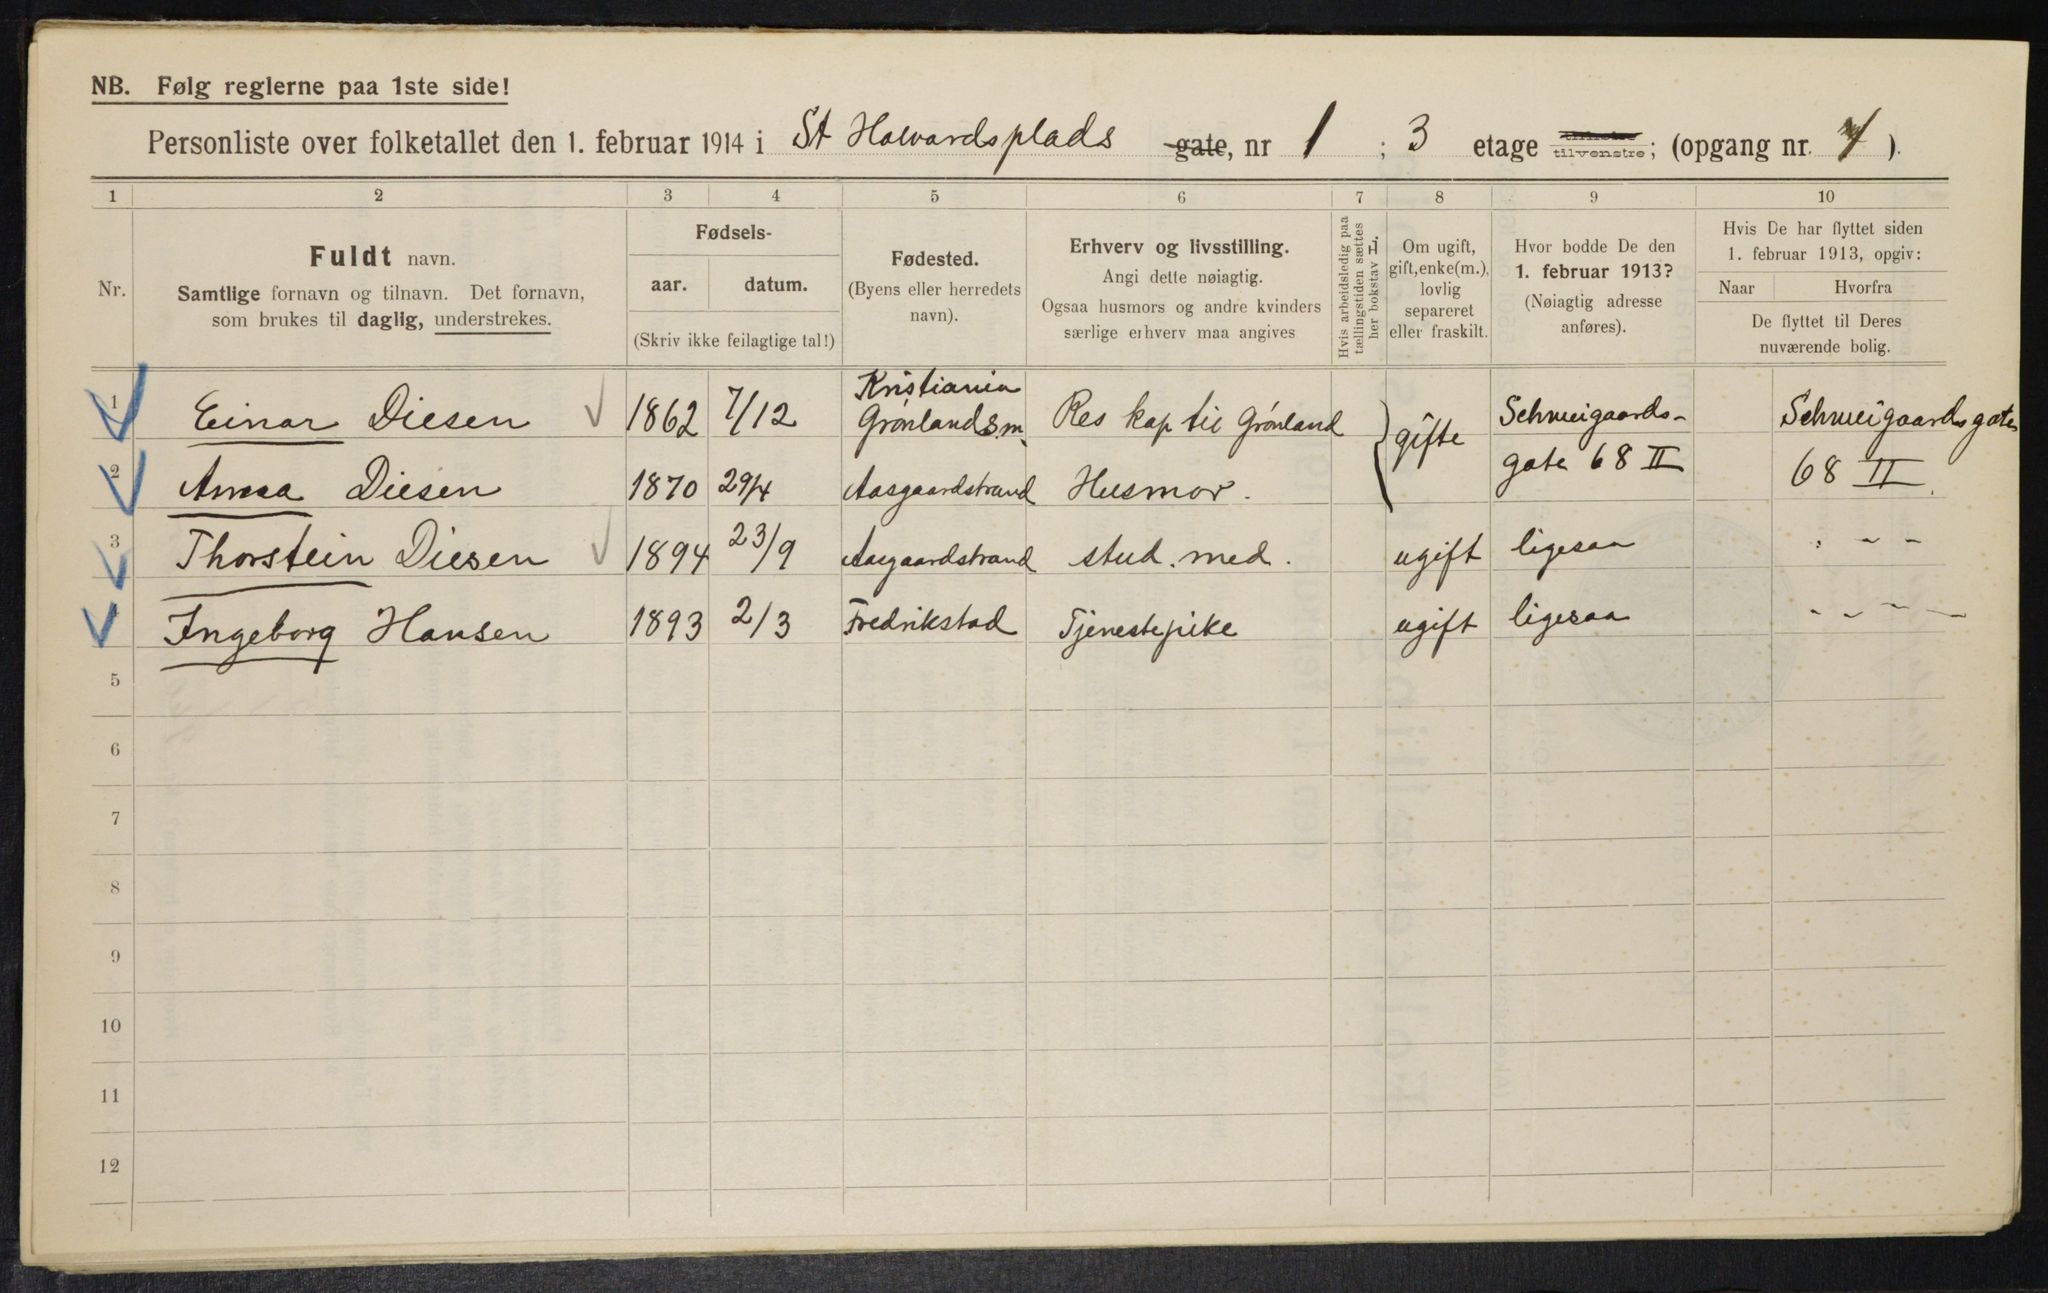 NB. Følg reglerne paa 1ste side!
Personliste over folketallet den 1. februar 1914 i St Halvardsplads gate, nr 1 ; 3 etage tilvenstre; (opgang nr. 4 ).
1 2 3 4 5 6 7 8 9 10
Nr.
Fuldt navn.
Samtlige fornavn og tilnavn. Det fornavn,
som brukes til daglig, understrekes.
Fødsels-
aar. datum.
(Skriv ikke feilagtige tal!)
Fødested.
(Byens eller herredets
navn).
Erhverv og livsstilling.
Angi dette nøiagtig.
Ogsaa husmors og andre kvinders
særlige erhverv maa angives
Hvis arbeidsledig paa
tællingstiden sættes
her bokstav L.
Om ugift,
gift, enke(m.),
lovlig
separeret
eller fraskilt.
Hvor bodde De den
1. februar 1913?
(Nøiagtig adresse
anføres).
Hvis De har flyttet siden
1. februar 1913, opgiv:
Naar Hvorfra
De flyttet til Deres
nuværende bolig.
1 Einar Diesen 1862 7/12 Kristiania Grønlands.m. Res kap til Grønland gifte Schweigaards- Schweigaardsgate
2 Anna Diesen 1870 29/4 Aasgaardstrand Husmor. gate 68 II 68 II
3 Thorstein Diesen 1894 23/9 Aasgaardstrand stud. med. ugift ligesaa " - -
4 Ingeborg Hansen 1893 2/3 Fredrikstad Tjenestepike ugift ligesaa - - - -
5
6
7
8
9
10
11
12